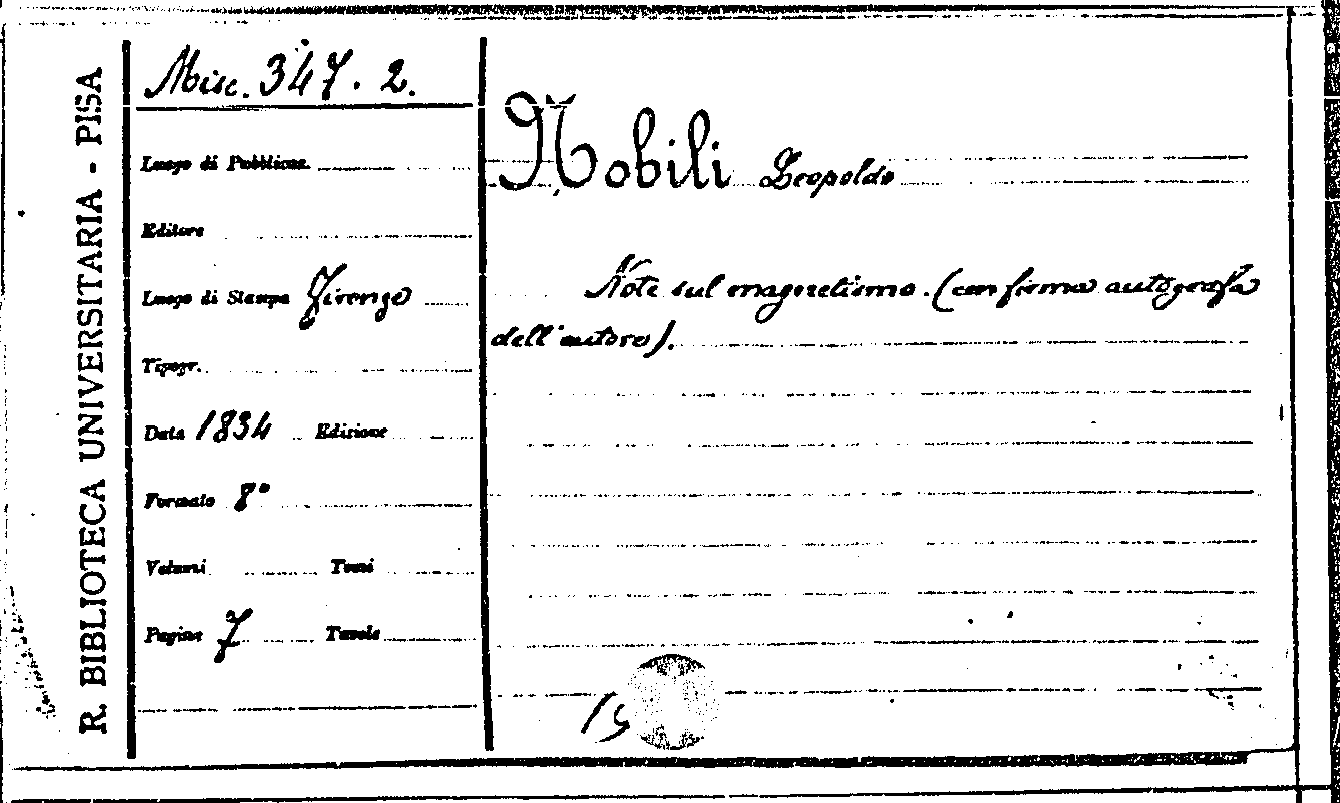 R. BIBLIOTECA UNIVERSITARIA - PISA
Misc. 347. 2.
Luogo di Pubblicaz.
Editore
Luogo di Stampa Firenze
Tipogr.
Data 1834 Edizione
Formato 8°
Volumi Tomi
Pagine 7 Tavole
Nobili Leopoldo
Note sul magnetismo. (con firma autografa
dell'autore).